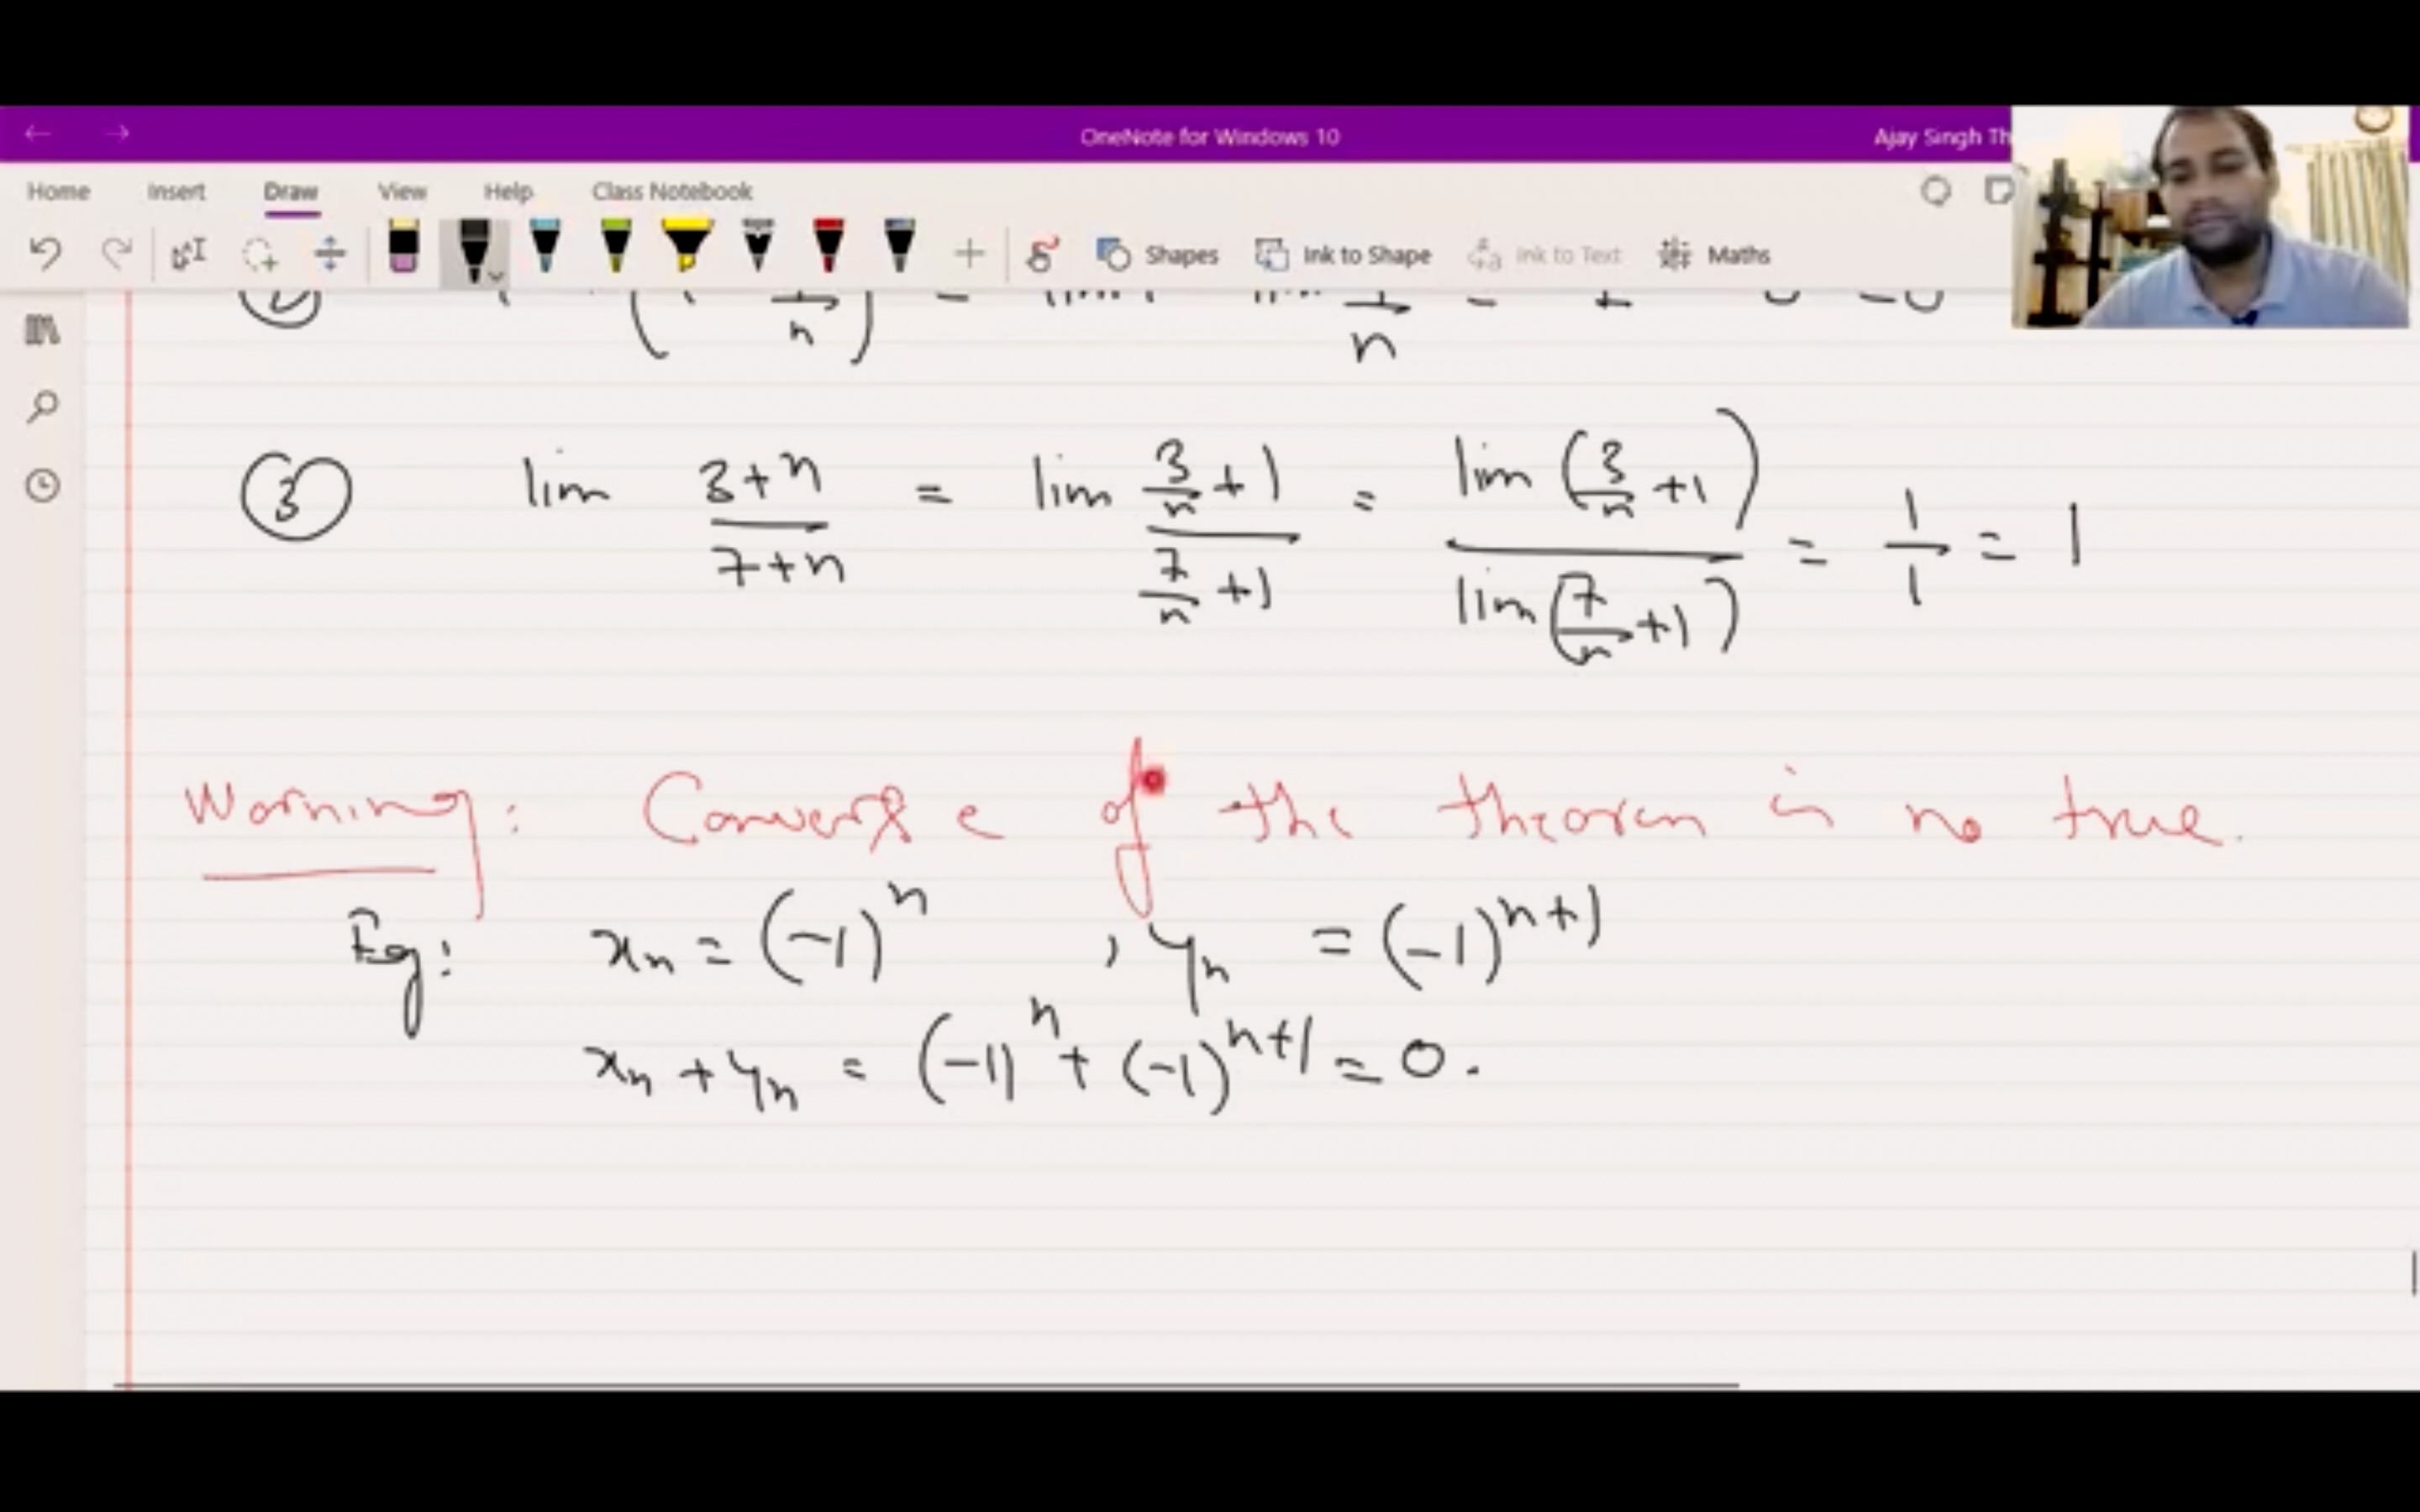 OneNote for Windows 10
Ajay Singh Th
Home Insert Draw View Help Class Notebook
Shapes Ink to Shape Ink to Text Maths
3 lim (3+n)/(7+n) = lim (3/n +1)/(7/n +1) = lim (3/n +1)/lim (7/n +1) = 1/1 = 1
Warning: Converse of the theorem is no true.
Eg: xn = (-1)^n , yn = (-1)^(n+1)
xn + yn = (-1)^n + (-1)^(n+1) = 0.